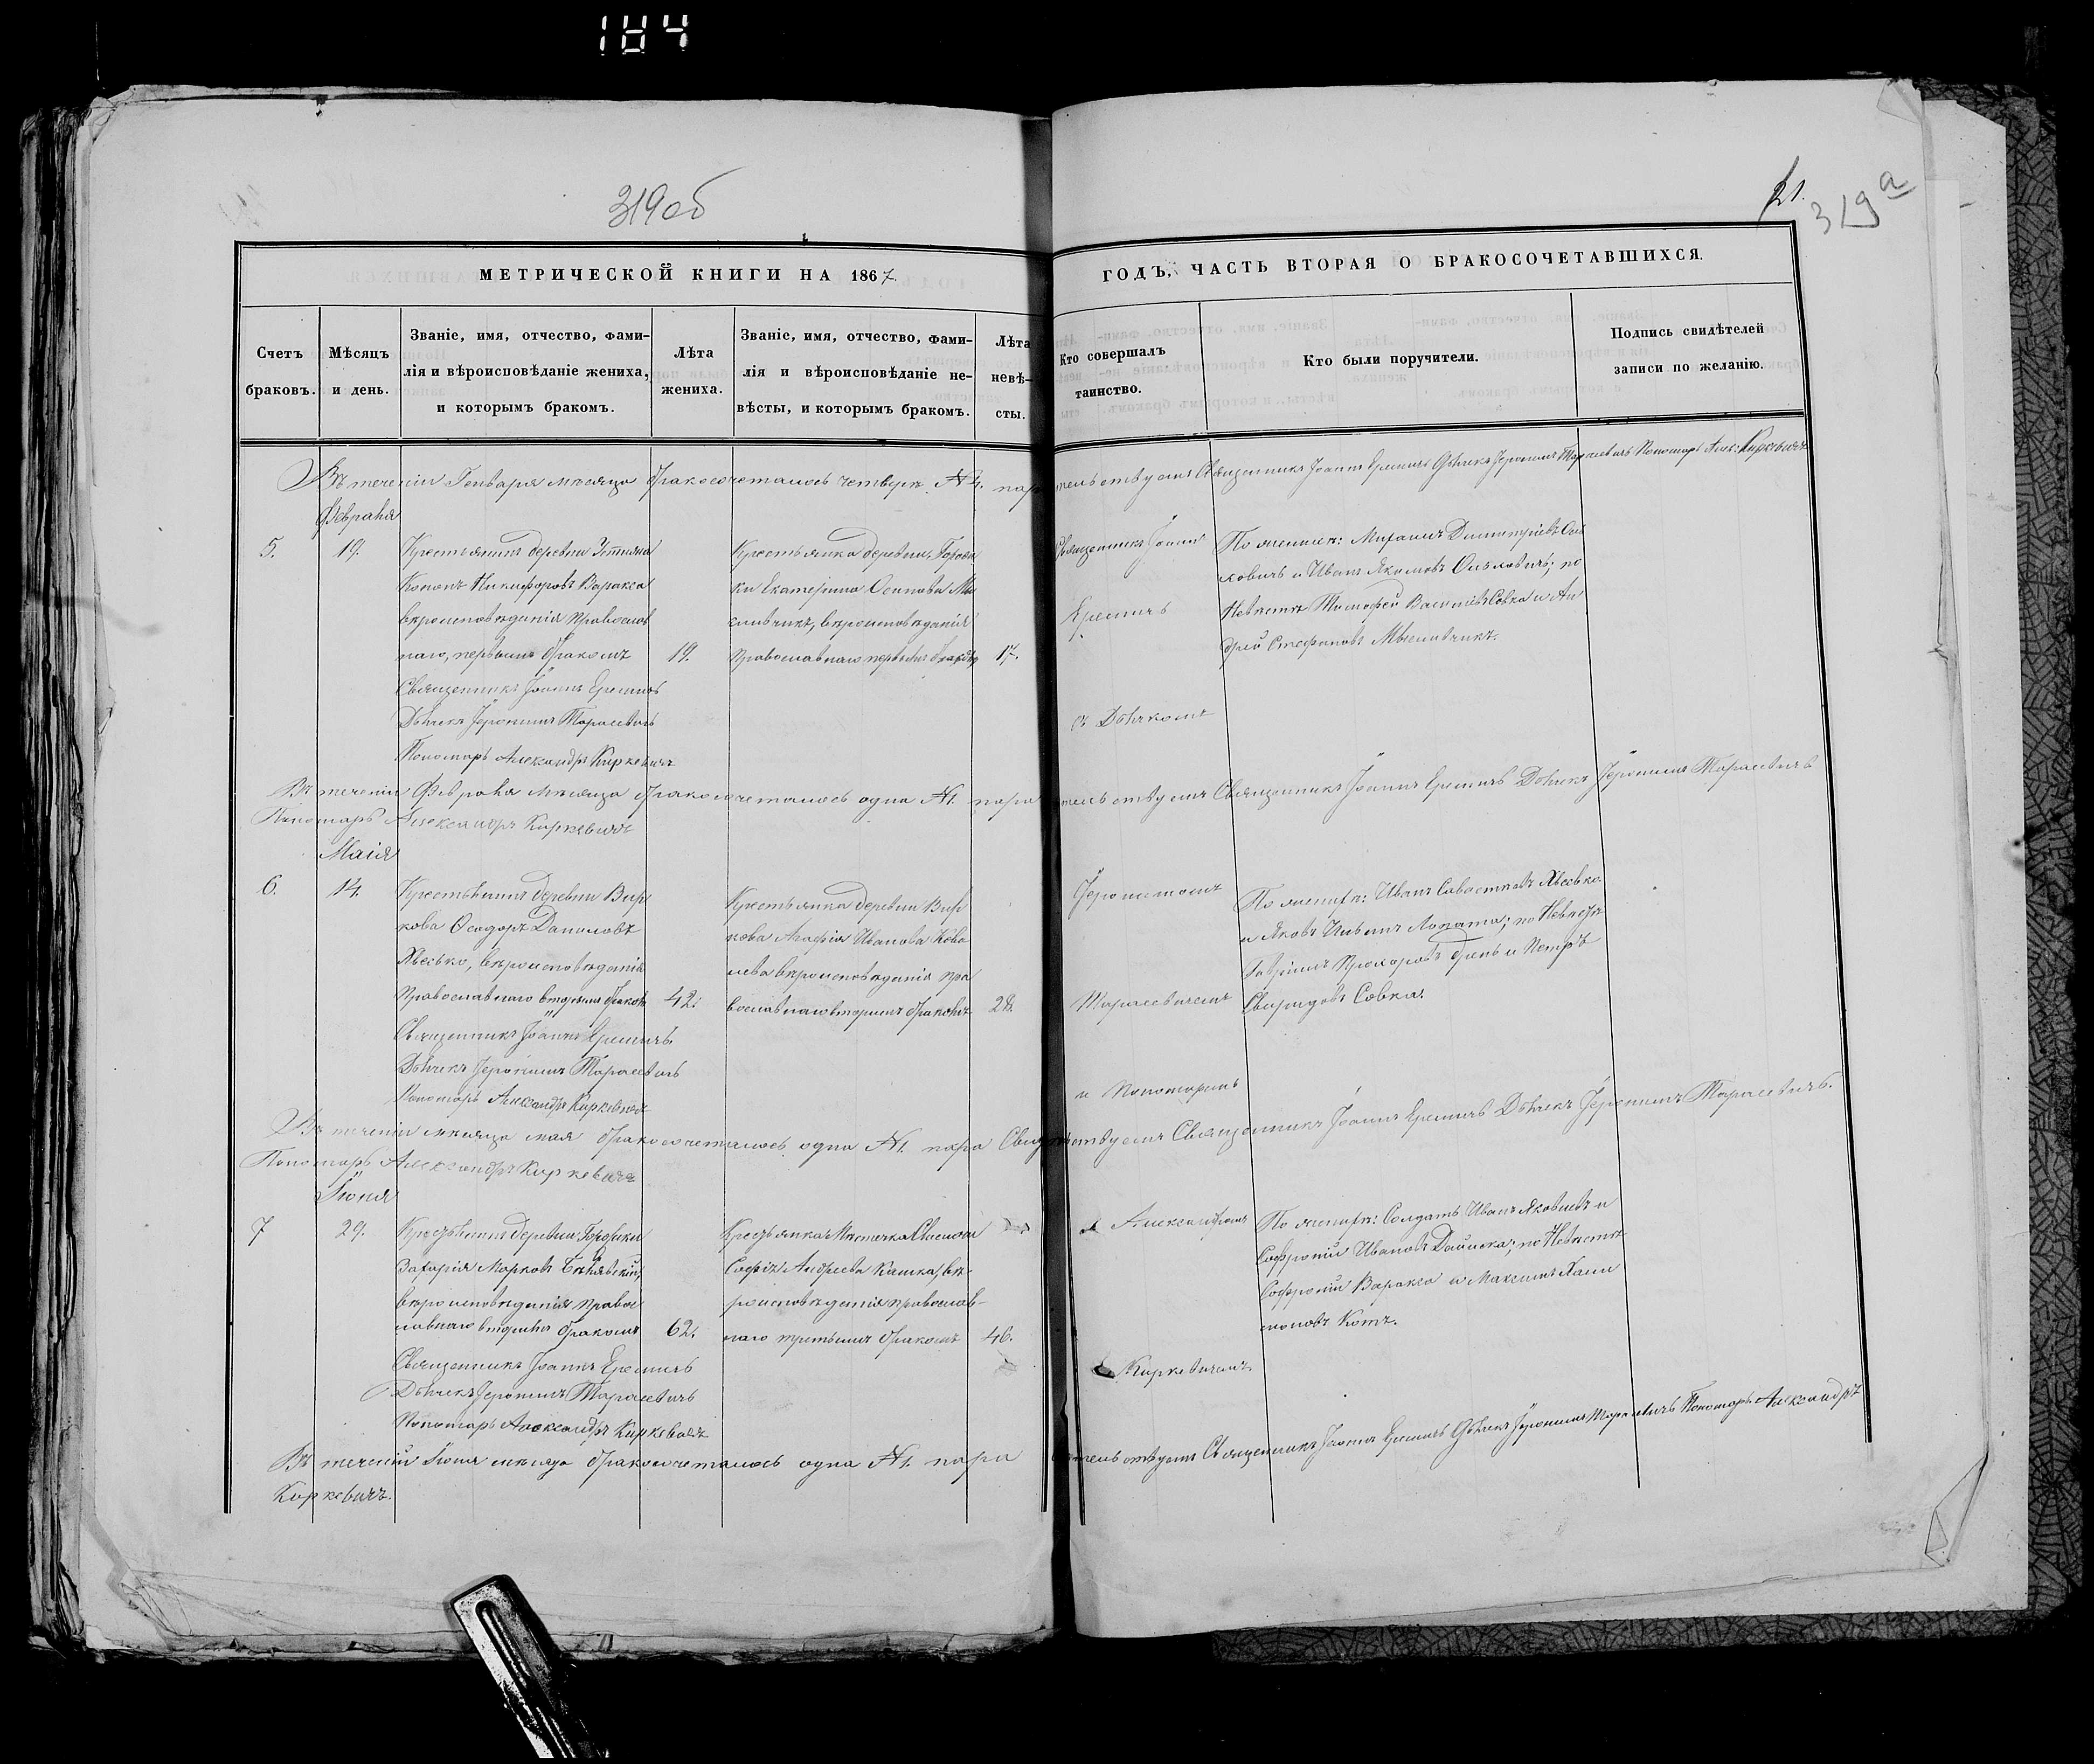 184
319об
21.
319а
МЕТРИЧЕСКОЙ КНИГИ НА 1867.
ГОДЪ, ЧАСТЬ ВТОРАЯ О БРАКОСОЧЕТАВШИХСЯ.
Счетъ
браковъ.
Мѣсяцъ
и день.
Званіе, имя, отчество, фами-
лія и вѣроисповѣданіе жениха,
и которымъ бракомъ.
Лѣта
жениха.
Званіе, имя, отчество, фами-
лія и вѣроисповѣданіе не-
вѣсты, и которымъ бракомъ.
Лѣта
невѣ-
сты.
Кто совершалъ
таинство.
Кто были поручители.
Подпись свидѣтелей
записи по желанію.
Въ теченіи Генваря мѣсяца бракосочеталось четверѣ №4. пар тельствуемъ Священникъ Іоаннъ Еремичь Дьячекъ Іеронимъ Тарасевичь Пономарь Алек: Киркевичъ
Февраля
5.
19.
Крестьянинъ деревни
Кононъ Никифоровъ Варакса
вѣроисповѣданія Православ
наго, первымъ бракомъ
19.
Священникъ Іоаннъ Еремичь
Дьячекъ Іеронимъ Тарасевичь
Пономарь Александръ Киркевичъ
Крестьянка деревни
ки Екатерина Осипова Мы
сливчикъ, вѣроисповѣданія
православнаго первымъ бракомъ
17.
Священникъ Іоаннъ
Еремичь
съ Дьячкомъ
По женихѣ: Михаилъ Димитріевъ
ковичь и Иванъ Якимовъ по
Невѣстѣ Тимофей Василіевъ Совка и Ан
дрей Стефановъ Мысливчикъ.
Въ теченіи Февраля мѣсяца бракосочеталось одна №1. пара тельствуемъ Священникъ Іоаннъ Еремичь Дьячекъ Іеронимъ Тарасевичь
Пономарь Александръ Киркевичъ
Маія
6.
14.
Крестьянинъ деревни Вир
кова Феодоръ Даниловъ
вѣроисповѣданія
Православнаго вторымъ браком
42.
Священникъ Іоаннъ Еремичь.
Дьячекъ Іеронимъ Тарасевичь
Пономарь Александръ Киркевичъ
Крестьянка деревни Вир
кова Агафія Иванова Кова
лева вѣроисповѣданія пра
вославнаго вторымъ бракомъ
28.
Іеронимомъ
Тарасевичемъ
и Пономаремъ
По женихѣ: Иванъ
и Яковъ Лопата; по Невѣстѣ
Гавріилъ Прохоровъ и Петръ
Свиридовъ Совка.
Въ теченіи мѣсяца мая бракосочеталось одна №1. пара Свидѣтельствуемъ Священникъ Іоаннъ Еремичь Дьячекъ Іеронимъ Тарасевичь.
Пономарь Александръ Киркевичъ
Іюня
7
29.
Крестьянинъ деревни
Захарія Марковъ
вѣроисповѣданія правос
лавнаго вторымъ бракомъ
62.
Священникъ Іоаннъ Еремичь
Дьячекъ Іеронимъ Тарасевичь
Пономарь Александръ Киркевичъ
Крестьянка Мѣстечка
Софія Андреева вѣ
роисповѣданія православ-
наго третьимъ бракомъ
46.
Александромъ
Киркевичемъ
По женихѣ: Солдатъ Иванъ Яковлевъ и
Софроній Ивановъ по Невѣстѣ
Софроній Варакса и Максимъ
Котъ.
Въ теченіи Іюня мѣсяца бракосочеталось одна №1. пара тельствуемъ Священникъ Іоаннъ Еремичь Дьячекъ Іеронимъ Тарасевичь Пономарь Александръ
Киркевичъ.